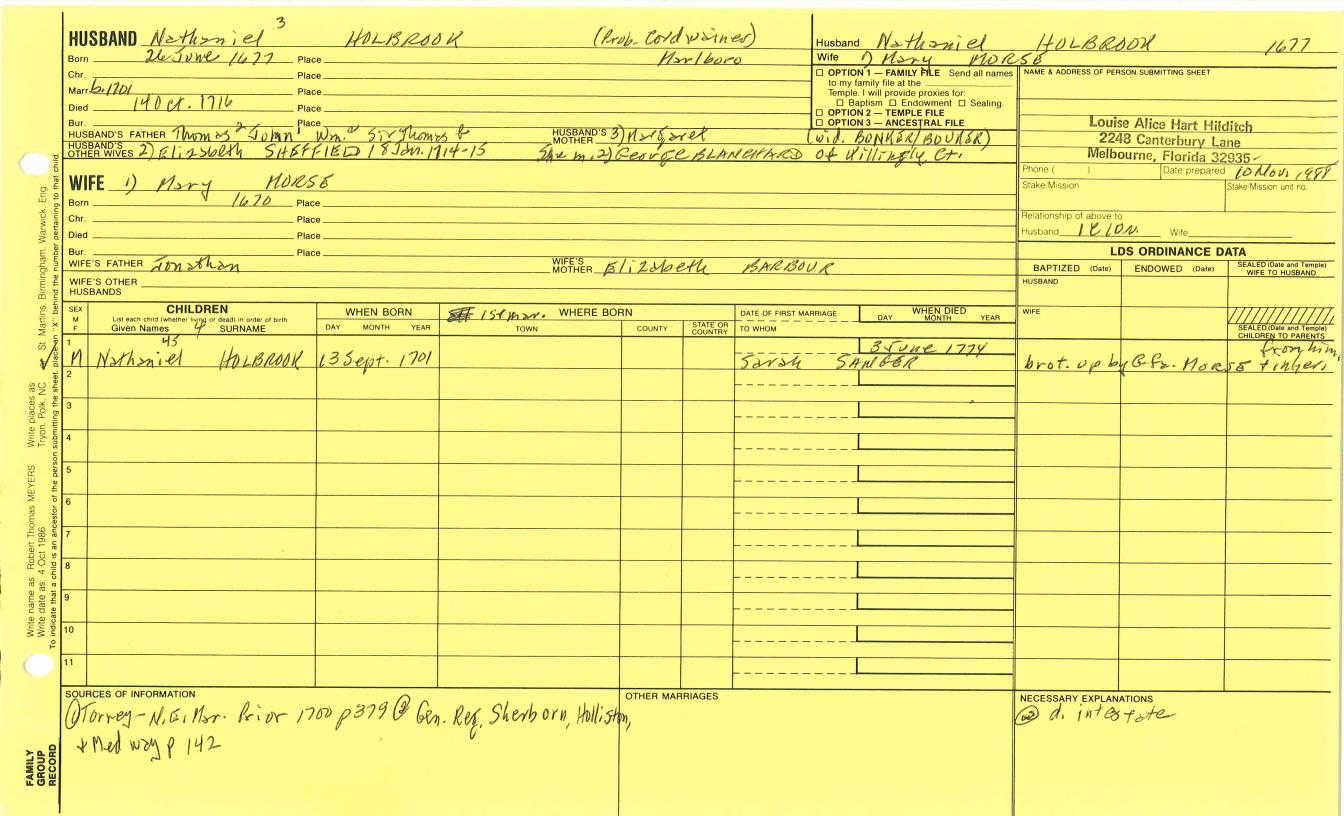 HUSBAND Nathaniel 3 HOLBROOK (Prob. Cordwainer)
Born 26 June 1677 Place Marlboro
Chr. Place
Marr b. 1701 Place
Died 14 Oct. 1716 Place
Bur. Place
HUSBAND'S FATHER Thomas 2 John 1 Wm. Sir Thomas HUSBAND'S MOTHER 3) Margaret (wid. BONKER/BOUKER)
HUSBAND'S OTHER WIVES 2) Elizabeth SHEFFIELD 18 Jan. 1714-15 She m. 2) George BLANCHARD of Killingly, Ct.
WIFE 1) Mary MORSE
Born 1670 Place
Chr. Place
Died Place
Bur. Place
WIFE'S FATHER Jonathan WIFE'S MOTHER Elizabeth BARBOUR
WIFE'S OTHER HUSBANDS
Husband Nathaniel HOLBROOK 1677
Wife 1) Mary MORSE
☐ OPTION 1 — FAMILY FILE Send all names
to my family file at the
Temple. I will provide proxies for:
☐ Baptism ☐ Endowment ☐ Sealing.
☐ OPTION 2 — TEMPLE FILE
☐ OPTION 3 — ANCESTRAL FILE
NAME & ADDRESS OF PERSON SUBMITTING SHEET
Louise Alice Hart Hilditch
2248 Canterbury Lane
Melbourne, Florida 32935
Phone ( ) Date prepared 10 Nov 1988
Stake/Mission Stake/Mission unit no.
Relationship of above to
Husband Wife
LDS ORDINANCE DATA
BAPTIZED (Date) ENDOWED (Date) SEALED (Date and Temple) WIFE TO HUSBAND
HUSBAND
WIFE
SEALED (Date and Temple) CHILDREN TO PARENTS
SEX M F
CHILDREN
List each child (whether living or dead) in order of birth
Given Names SURNAME
WHEN BORN
DAY MONTH YEAR
1st mar. WHERE BORN
TOWN COUNTY STATE OR COUNTRY
DATE OF FIRST MARRIAGE
TO WHOM
WHEN DIED
DAY MONTH YEAR
1 M Nathaniel 4 HOLBROOK 13 Sept. 1701 Sarah SANGER 3 June 1774 brot. up by G. fa. MORSE + inher. from him.
2
3
4
5
6
7
8
9
10
11
SOURCES OF INFORMATION
① Torrey - N.E. Mar. Prior 1700 p379 ② Gen. Reg. Sherborn, Holliston,
+ Medway p 142
OTHER MARRIAGES
NECESSARY EXPLANATIONS
d. intestate
Write name as Robert Thomas MEYERS Write places as St. Martins, Birmingham, Warwick, Eng.
Write date as 4 Oct 1986 Tryon, Polk, NC
To indicate that a child is an ancestor of the person submitting the sheet, place an "X" behind the number pertaining to that child
FAMILY
GROUP
RECORD